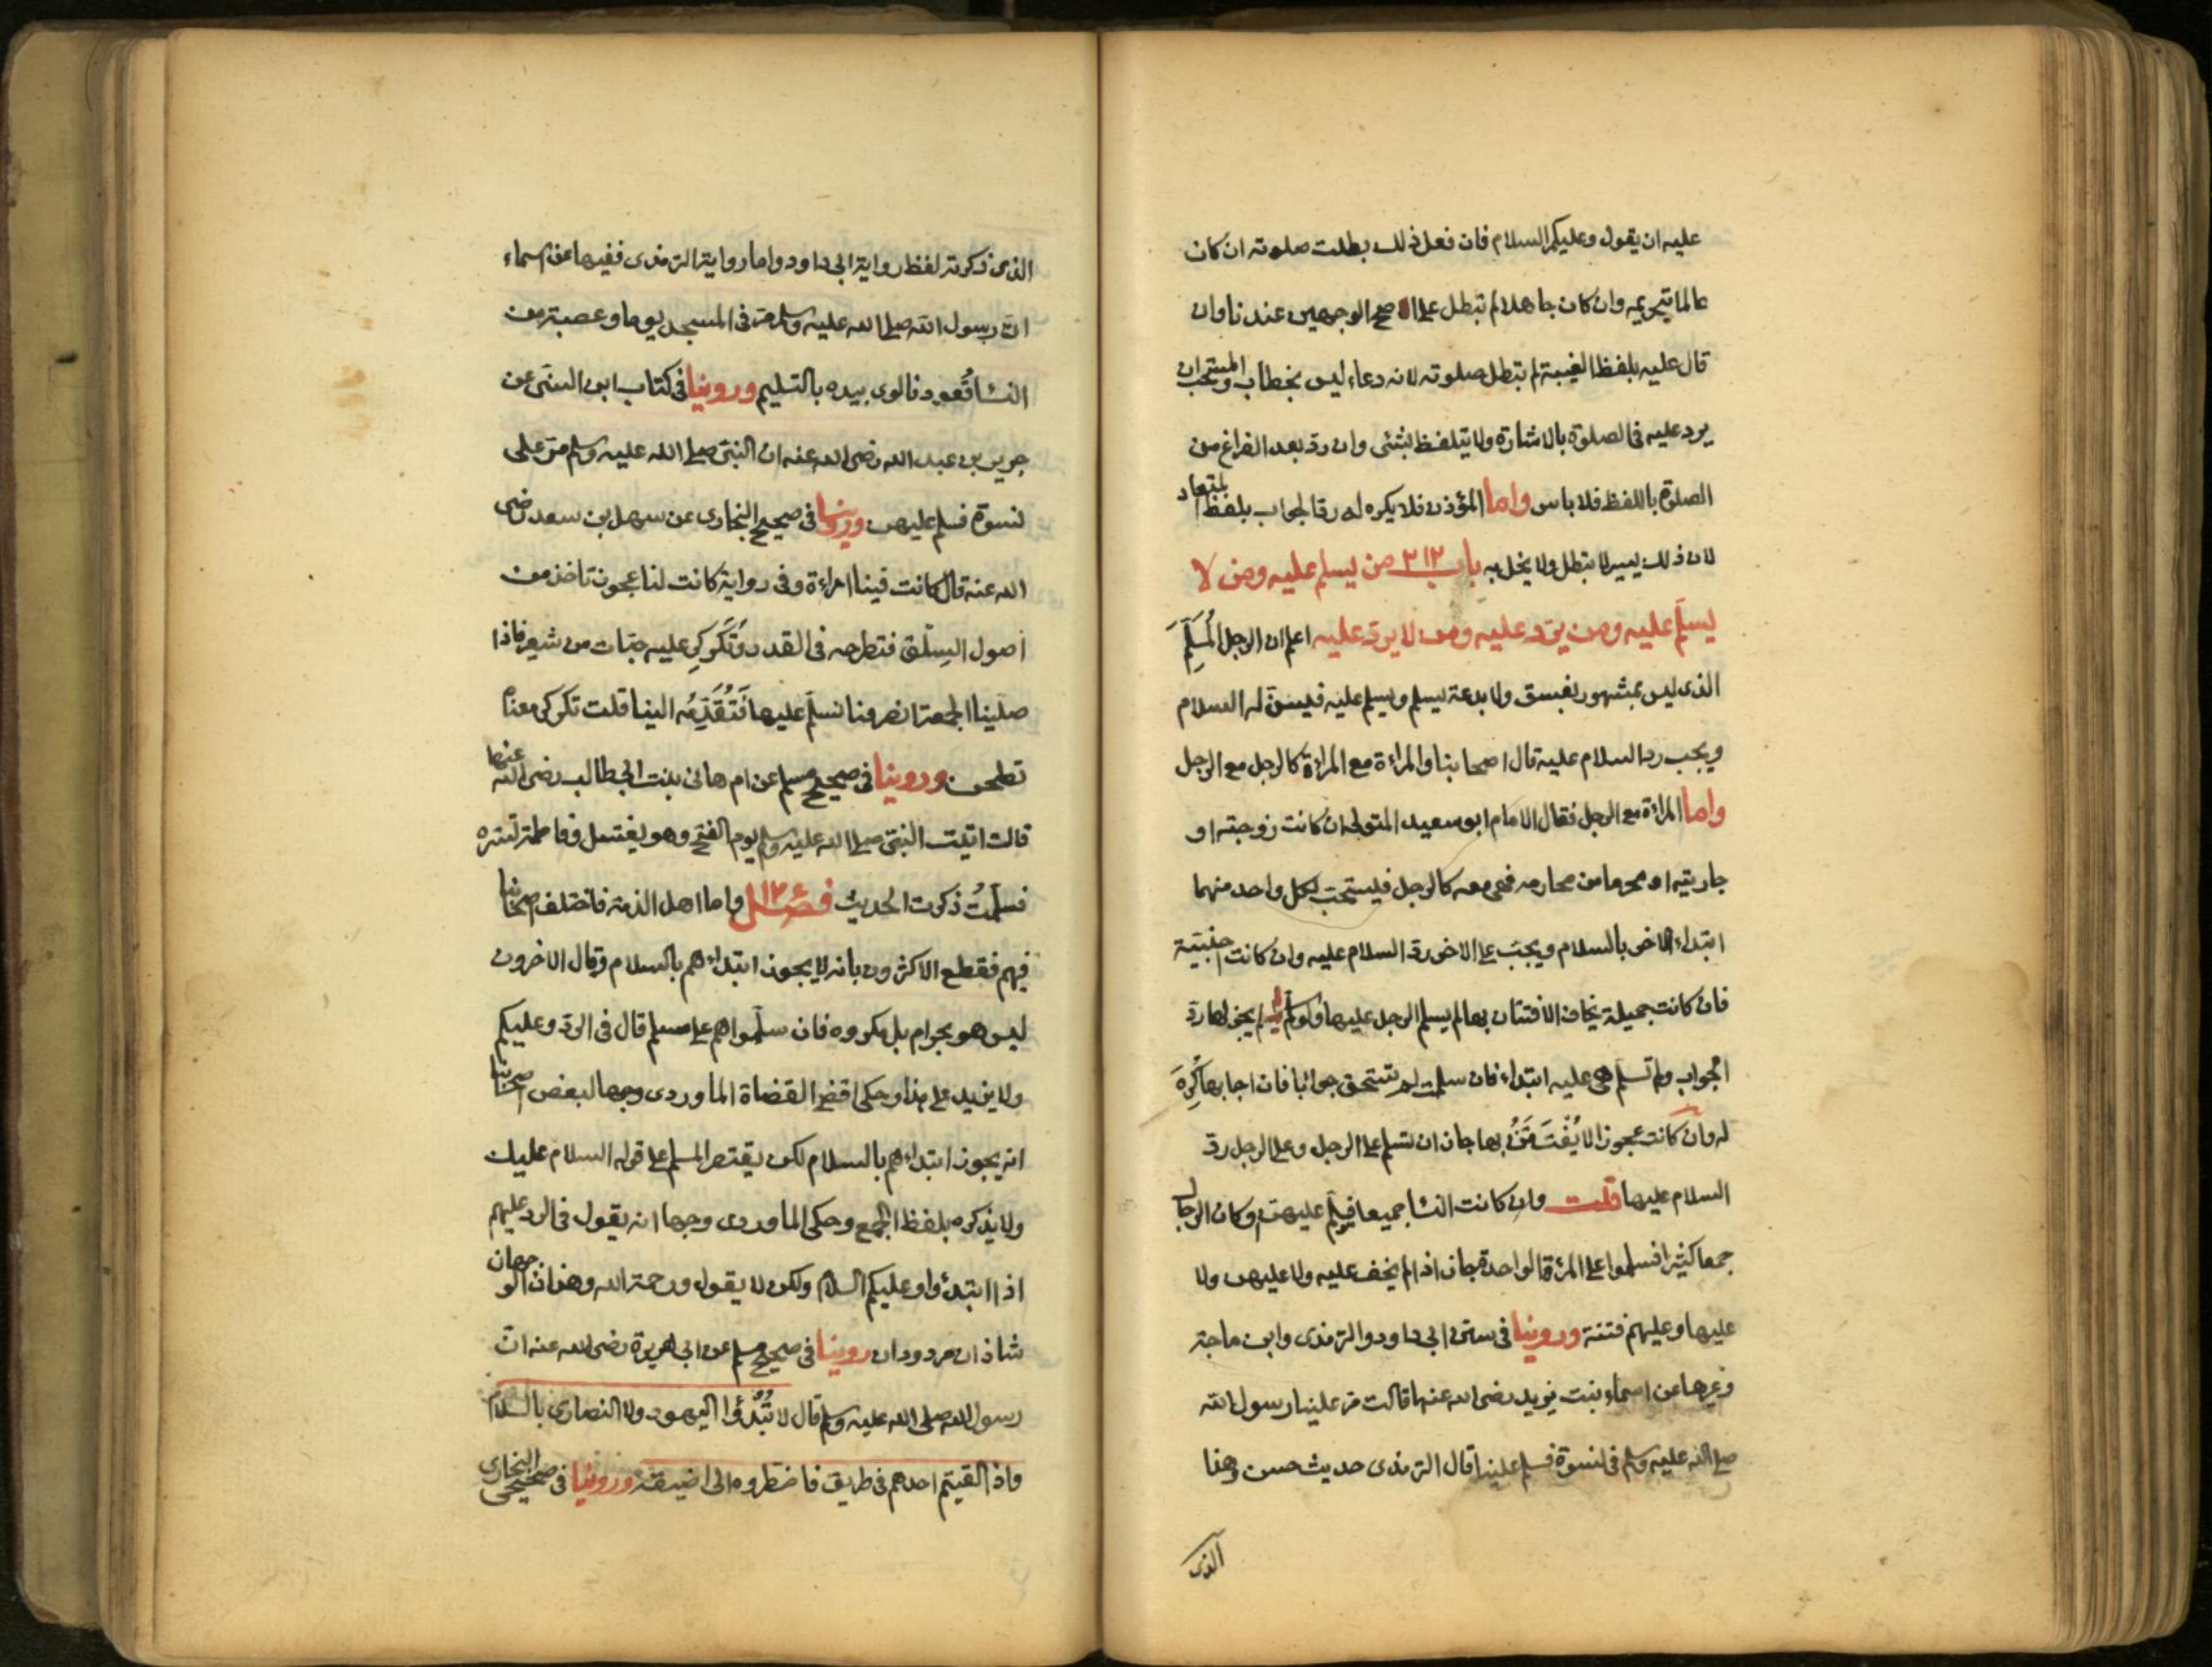 عليه ان يقول وعليكم السلام فان فعل ذلك بطلت صلوته ان كان
عالما بتحريمه وان كان جاهلا لم تبطل على اصح الوجهين عندنا وان
قال عليه بلفظ الغيبة لم تبطل صلوته لانه دعاء ليس بخطاب والمستحب ان
يرد عليه في الصلوة بالاشارة ولا يتلفظ بشئ وان رد بعد الفراغ من
الصلوة باللفظ فلا باس واما المؤذن فلا يكره له رد الجواب بلفظ المعتاد
لان ذلك يسير لا يبطل ولا يخل به باب ٣١٢ من يسلم عليه ومن لا
يسلم عليه ومن يرد عليه ومن لا يرد عليه اعلم ان الرجل المُسلِمَ
الذى ليس بمشهور بفسق ولا بدعة يسلم ويسلم عليه فيسن له السلام
ويجب رد السلام عليه قال اصحابنا والمراءة مع المراءة كالرجل مع الرجل
واما المراءة مع الرجل فقال الامام ابو سعيد المتولى ان كانت زوجته او
جاريته او محرما من محارمه فهى معه كالرجل فيستحب لكل واحد منهما
ابتداء الاخر بالسلام ويجب على الاخر رد السلام عليه وان كانت اجنبية
فان كانت جميلة يخاف الافتتان بها لم يسلم الرجل عليها ولو سلم لم يجز لها رد
الجواب ولم تسلم هى عليه ابتداء فان سلمت لم تستحق جوابا فان اجابها كُرِهَ
له وان كانت عجوزا لا يُفْتَتَنُ بها جاز ان تسلم على الرجل وعلى الرجل رد
السلام عليها قلت وان كانت النسا جميعا فيسلم عليهن وكان الرجال
جمعا كثيرا فسلموا على المرءة الواحدة جاز اذا لم يخف عليه ولا عليهن ولا
عليها وعليهم فتنة وروينا فى سنن ابى داود والترمذى وابن ماجة
وغيرها عن اسماء بنت يزيد رضى الله عنها قالت مر علينا رسول الله
صلى الله عليه وسلم فى نسوة فسلم علينا قال الترمذى حديث حسن وهذا
الذى
الذى ذكرته لفظ رواية ابى داود واما رواية الترمذى ففيها عن اسماء
ان رسول الله صلى الله عليه وسلم مر فى المسجد يوما وعصبة من
النسا قُعود فالوى بيده بالتسليم وروينا فى كتاب ابن السنى عن
جرير بن عبد الله رضى الله عنه ان النبى صلى الله عليه وسلم مر على
نسوة فسلم عليهن وروينا فى صحيح البخارى عن سهل بن سعد رضى
الله عنه قال كانت فينا امراءة وفى رواية كانت لنا عجوز تاخذ من
اصول السلق فتطرحه فى القدر وتُكَركر عليه حبات من شعير فاذا
صلينا الجمعة انصرفنا نسلم عليها فَتُقَدِّمُه الينا قلت تكركر معناه
تطحن وروينا فى صحيح مسلم عن ام هانى بنت ابى طالب رضى الله عنها
قالت اتيت النبى صلى الله عليه وسلم يوم الفتح وهو يغتسل وفاطمة تستره
فسلمتُ ذكرت الحديث فصل واما اهل الذمة فاختلف اصحابنا
فيهم فقطع الاكثرون بانه لا يجوز ابتداءهم بالسلام وقال الاخرون
ليس هو بحرام بل مكروه فان سلموا هم على مسلم قال فى الرد وعليكم
ولا يزيد على هذا وحكى اقضى القضاة الماوردى وجها لبعض اصحابنا
انه يجوز ابتداءهم بالسلام لكن يقتصر المسلم على قوله السلام عليك
ولا يذكره بلفظ الجمع وحكى الماوردى وجها انه يقول فى الرد عليهم
اذا ابتدئوا وعليكم السلام ولكن لا يقول ورحمة الله وهذان الوجهان
شاذان مردودان روينا فى صحيح مسلم عن ابى هريرة رضى الله عنه ان
رسول الله صلى الله عليه وسلم قال لا تُبْدئوا اليهود ولا النصارى بالسلام
واذا لقيتم احدهم فى طريق فاضطروه الى اضيقه وروينا فى صحيحى البخارى